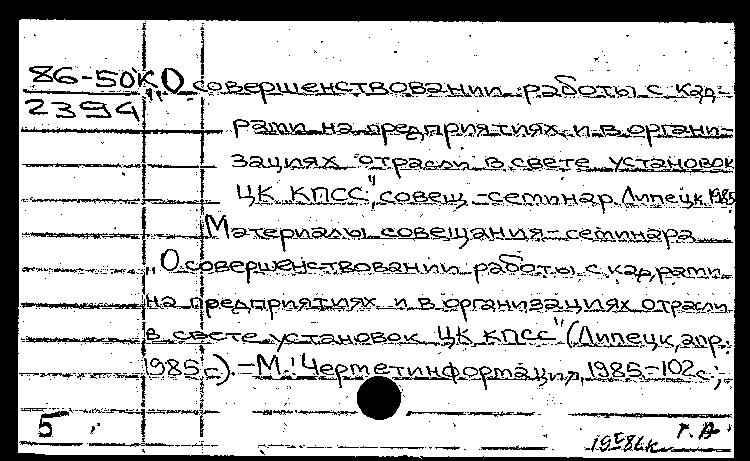 86-50К „О совершенствовании работы с кад-
2394
рами на предприятиях и в органи-
зациях отрасли в свете установок
ЦК КПСС", совещ.-семинар. Липецк. 1985
Материалы совещания-семинара
„О совершенствовании работы с кадрами
на предприятиях и в организациях отрасли
в свете установок ЦК КПСС" (Липецк, апр.
1985 г.). – М.: Черметинформация, 1985.-102с.;
5